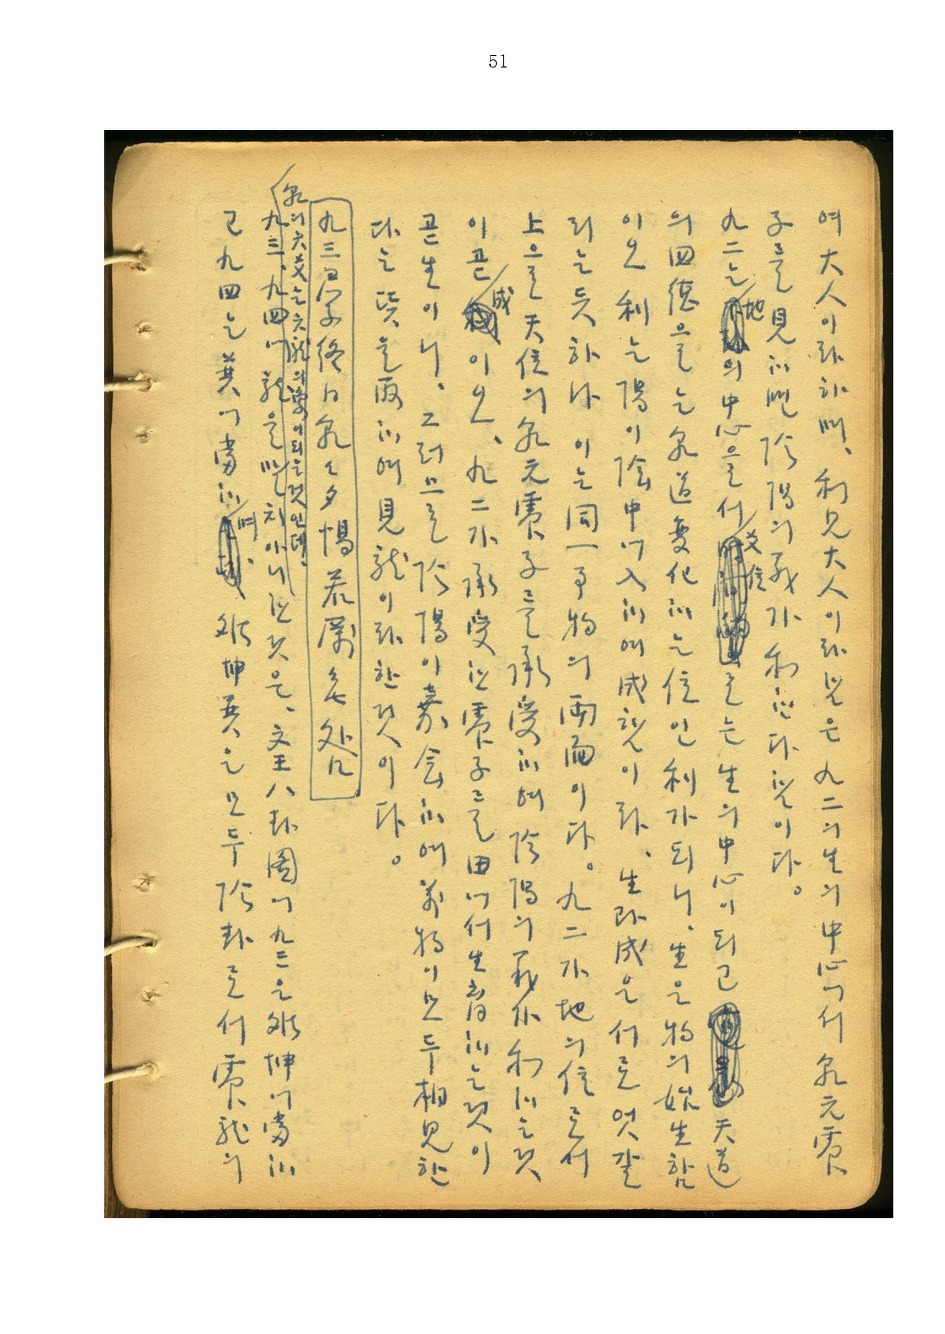 51
여 大人이라 하며, 利見大人이라 함은 九二의 生의 中心에서 乾元震
子를 見하면 陰陽의 義가 和한다 함이다.
九二는 地의 中心으로서 爻位로는 生의 中心이 되고 天道
의 四德으로는 乾道變化하는 位인 利가 되니, 生은 物의 始生함
이오 利는 陽이 陰中에 入하여 成함이라, 生과 成은 서로 엇갈
리는 듯하나 이는 同一事物의 兩面이다. 九二가 地의 位로서
上으로 天位의 乾元震子를 承受하여 陰陽의 義가 和하는 것
이 곧 成이오, 九二가 承受한 震子를 田에서 生育하는 것이
곧 生이니, 그러므로 陰陽이 嘉會하여 萬物이 모두 相見한
다는 뜻을 取하여 見龍이라 한 것이다.
九三 君子終日乾乾夕惕若厲无咎
乾의 六爻는 六龍의 象이 되는 것인데,
九三, 九四에 龍을 말치 아니한 것은, 文王八卦圖에 九三은 離坤에 當하
고 九四는 巽에 當하여, 離坤巽은 모두 陰卦로서 震龍의